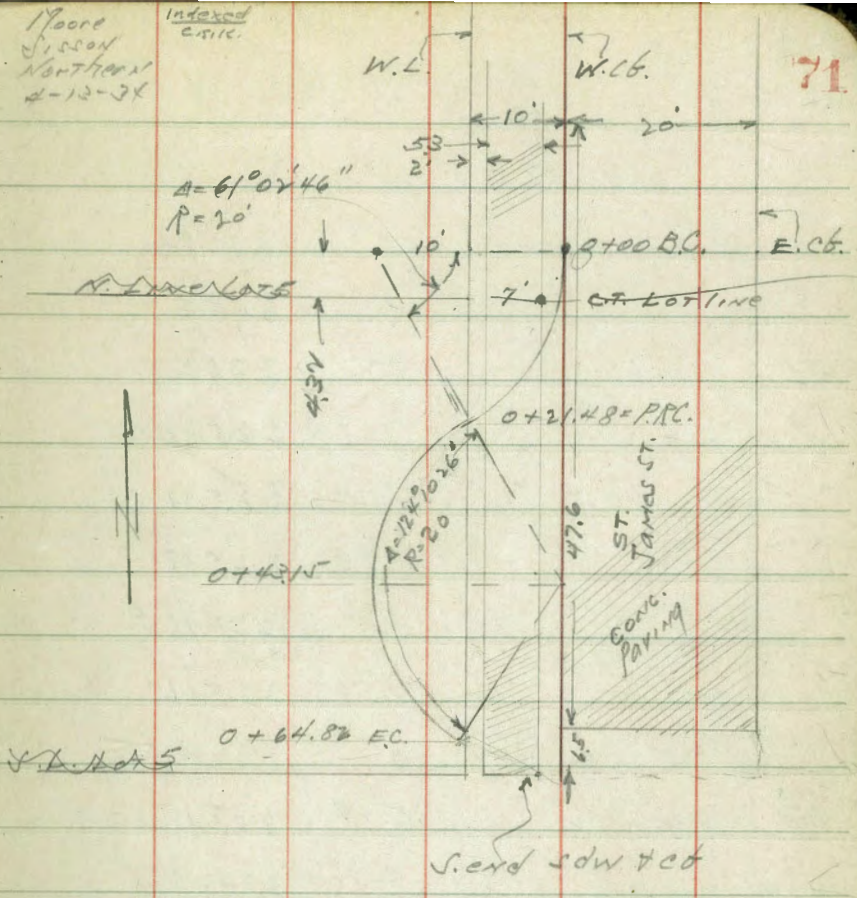 Moore
Sisson
Northern
4-13-34
Indexed
W.L.
W.Cb.
71
10'
20'
53
2'
Δ=61°02'46"
R=20'
10'
0+00 B.C.
E.Cb.
N. Line Lot 5
7'
Ct. Lot line
4.32
0+21.48=P.R.C.
Δ=124°10'26"
R=20
47.6
ST. JAMES ST.
0+43.15
CONC.
Paving
0+64.82 E.C.
S.L. Lot 5
6.5
S. end sdw & cb